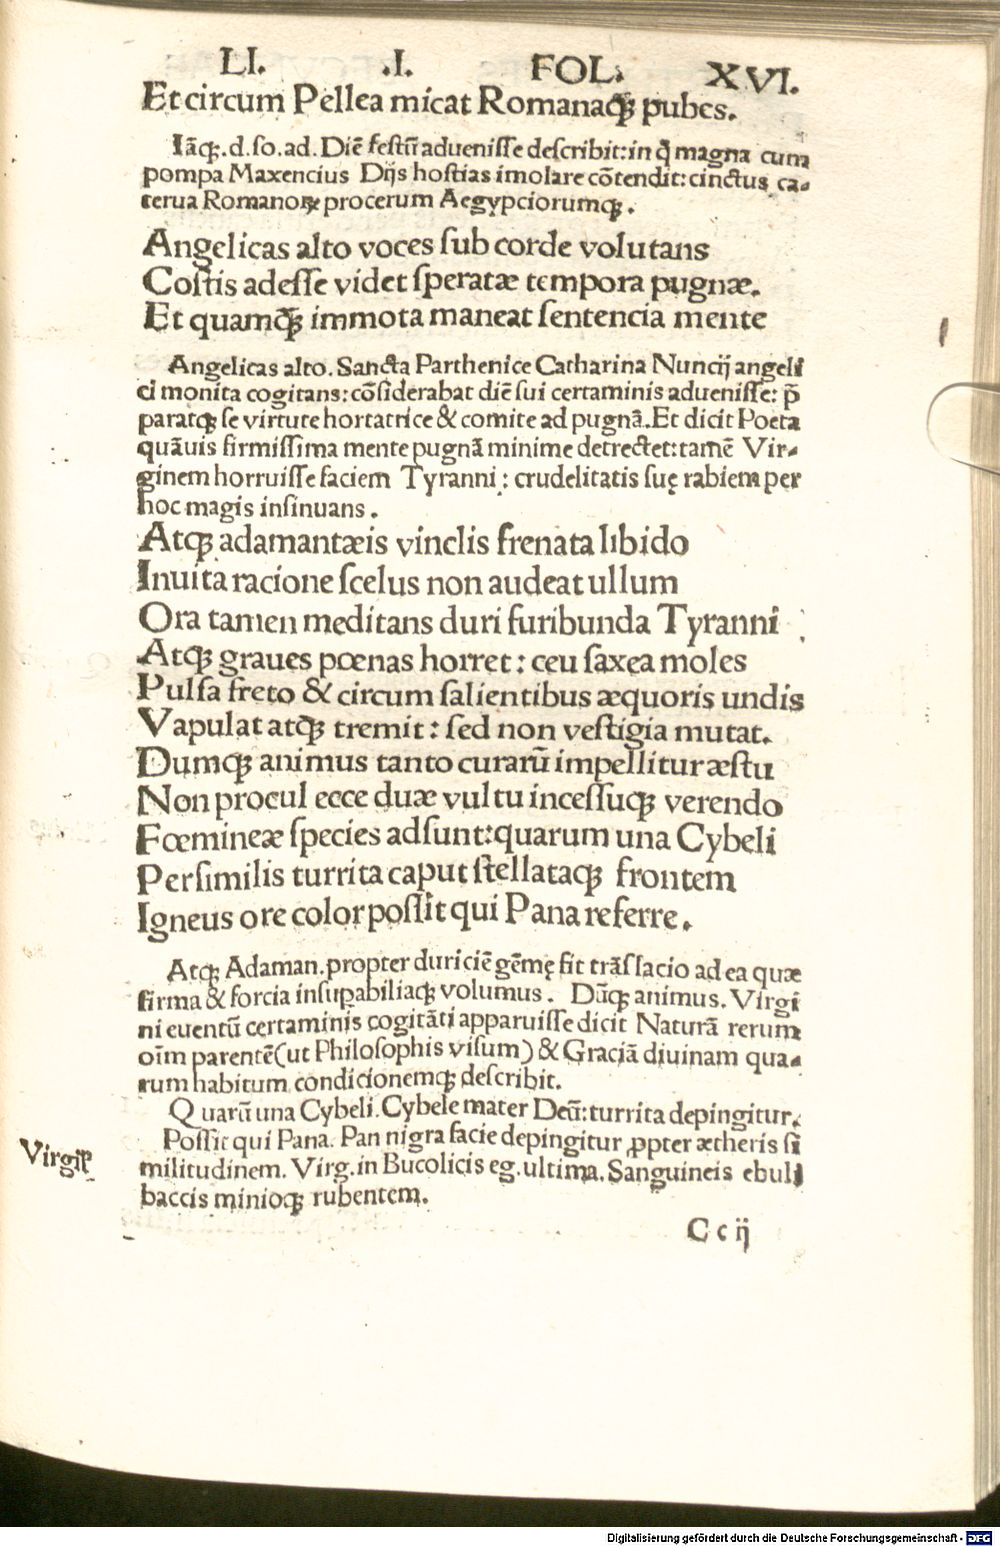 LI. .I. FOL. XVI.
Et circum Pellea micat Romanaqꝫ pubes.
Iāqꝫ.d.so.ad.Diē festū aduenisse describit:in q̄ magna cum
pompa Maxencius Dijs hostias imolare cōtendit:cinctus ca-
terua Romanoꝝ procerum Aegypciorumqꝫ.
Angelicas alto voces sub corde volutans
Costis adesse videt speratæ tempora pugnæ.
Et quamqꝫ immota maneat sentencia mente
Angelicas alto. Sancta Parthenice Catharina Nuncij angeli
ci monita cogitans:cōsiderabat diē sui certaminis aduenisse: p̄
paratqꝫ se virtute hortatrice & comite ad pugnā.Et dicit Poeta
quāuis firmissima mente pugnā minime detrectet:tamē Vir-
ginem horruisse faciem Tyranni: crudelitatis suę rabiem per
hoc magis insinuans.
Atqꝫ adamantæis vinclis frenata libido
Inuita racione scelus non audeat ullum
Ora tamen meditans duri furibunda Tyranni
Atqꝫ graues pœnas horret: ceu saxea moles
Pulsa freto & circum salientibus æquoris undis
Vapulat atqꝫ tremit: sed non vestigia mutat.
Dumqꝫ animus tanto curarū impellitur æstu
Non procul ecce duæ vultu incessuqꝫ verendo
Fœmineæ species adsunt:quarum una Cybeli
Persimilis turrita caput stellataqꝫ frontem
Igneus ore color possit qui Pana referre.
Atqꝫ Adaman.propter duriciē gēmę fit trāslacio ad ea quæ
firma & forcia insuꝑabiliaqꝫ volumus. Dūqꝫ animus. Virgi
ni euentū certaminis cogitāti apparuisse dicit Naturā rerum
oīm parentē(ut Philosophis visum) & Graciā diuinam qua-
rum habitum condicionemqꝫ describit.
Quarū una Cybeli.Cybele mater Deū:turrita depingitur.
Possit qui Pana. Pan nigra facie depingitur ꝓpter ætheris si
militudinem. Virg.in Bucolicis eg.ultima.Sanguineis ebuli
baccis minioqꝫ rubentem.
Virgiꝉ
Ccij
Digitalisierung gefördert durch die Deutsche Forschungsgemeinschaft - DFG